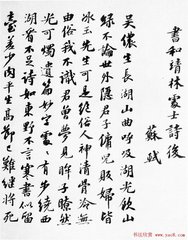 書和靖林處士詩後
蘇軾
吳儂生長湖山曲呼吸湖光飲山
綠不論世外隱君子傭兒販婦皆
冰玉先生可是絕俗人神清骨冷無
由俗我不識君曾夢見眸子瞭然
光可燭遺篇妙字處々有步繞西
湖看不足詩如東野不言寒書似留
臺差少肉平生高節已難繼將死
书法欣赏
www.yac8.com